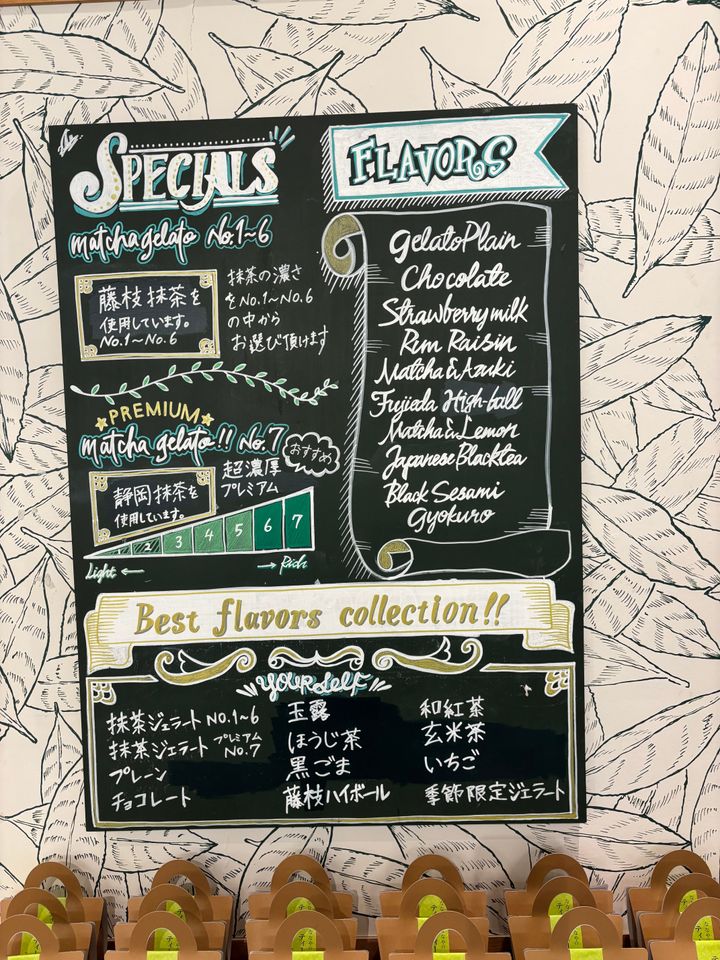 SPECIALS
matcha gelato No.1~6
藤枝抹茶を
使用しています。
No.1~No.6
抹茶の濃さ
をNo.1~No.6
の中から
お選び頂けます
PREMIUM
matcha gelato!! No.7
おすすめ
静岡抹茶を
使用しています。
超濃厚
プレミアム
2 3 4 5 6 7
Light ← → Rich
FLAVORS
Gelato Plain
Chocolate
Strawberry milk
Rum Raisin
Matcha & Azuki
Fujieda High-ball
Matcha & Lemon
Japanese Blacktea
Black Sesami
Gyokuro
Best flavors collection!!
yourself
抹茶ジェラート No.1~6
抹茶ジェラート プレミアム No.7
プレーン
チョコレート
玉露
ほうじ茶
黒ごま
藤枝ハイボール
和紅茶
玄米茶
いちご
季節限定ジェラート